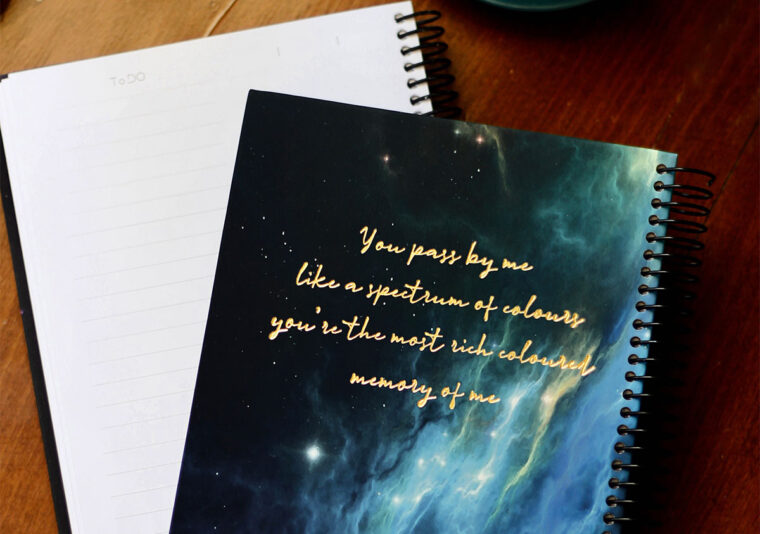 ToDO
You pass by me
like a spectrum of colours
you're the most rich coloured
memory of me